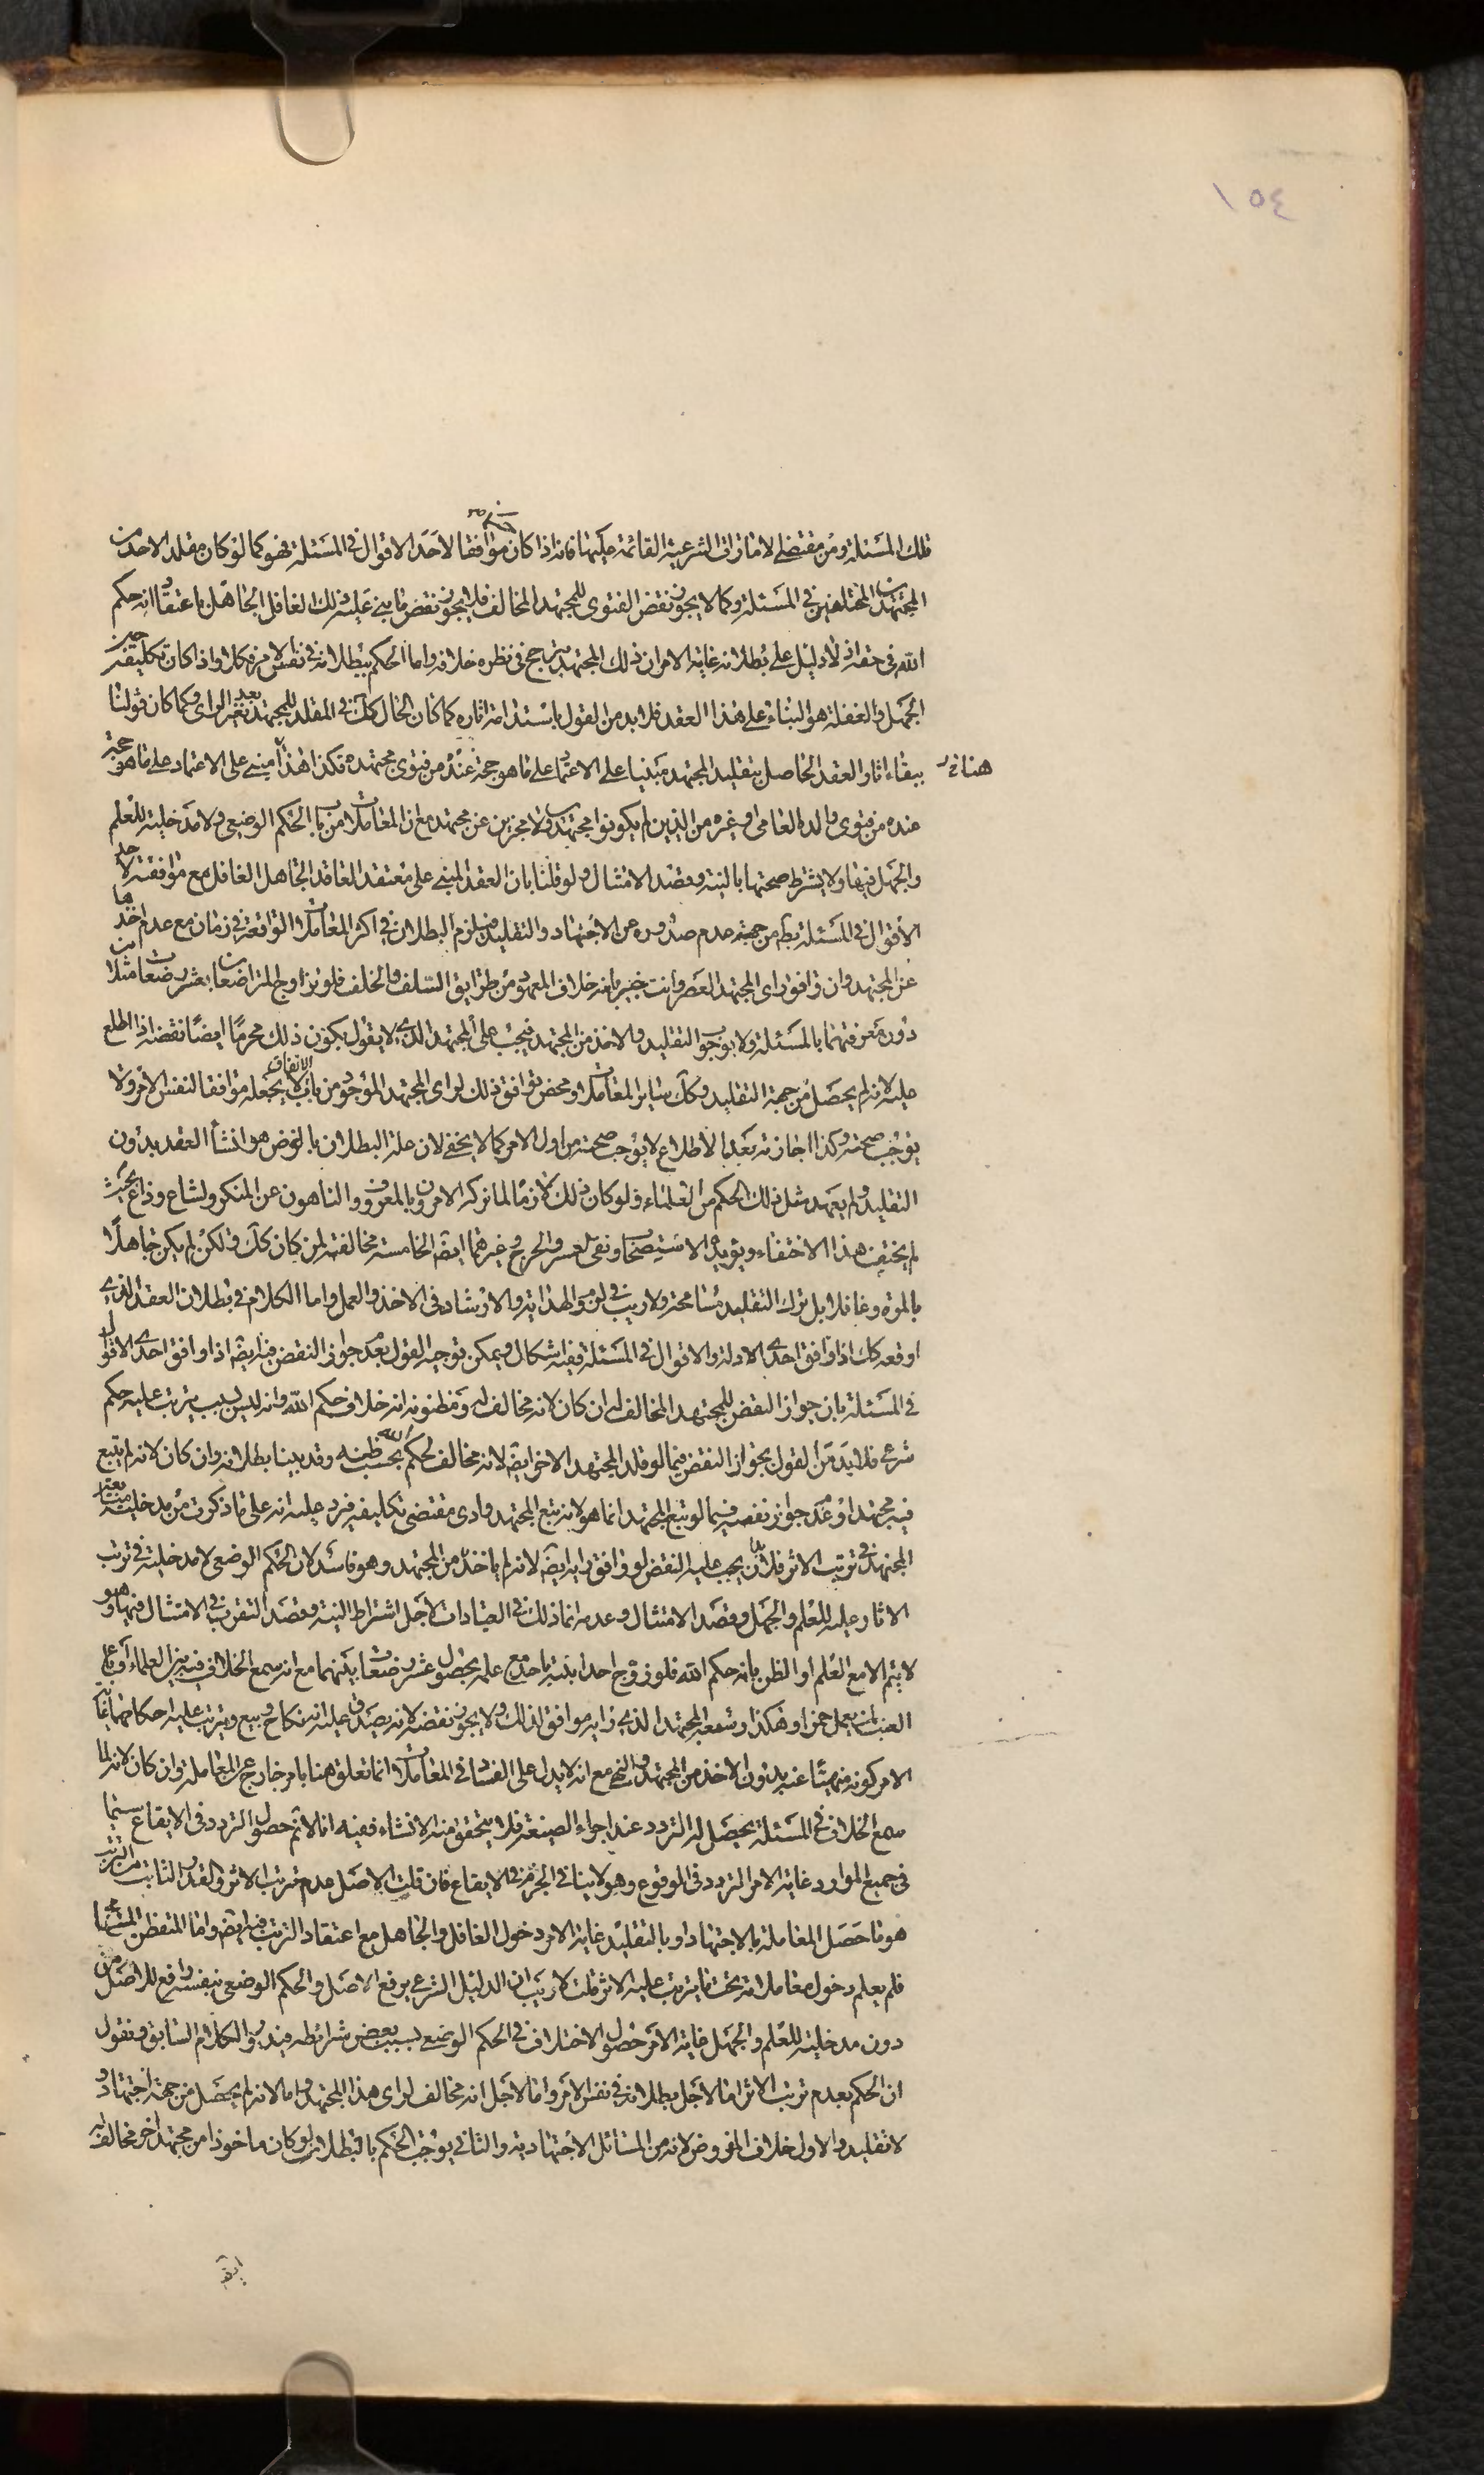 ١٥٤
تلك المسئلة ومن مقتضى الامارات الشرعية القائمة عليها فانه اذا كان موافقا لاحد الاقوال فى المسئلة فهو كما لو كان مقلد الاحد من
المجتهدين المختلفين فى المسئلة وكما لا يجوز نقض الفتوى للمجتهد المخالف فلا يجوز نقض ما بنى عليه ذلك الغافل الجاهل باعتقاد انه حكم
الله فى حقه اذ لا دليل على بطلانه غاية الامر ان ذلك المجتهد يترجح فى نظره خلافه واما الحكم ببطلانه فى نفس الامر فكلا واذا كان تكليفه حين
الجهل والغفلة هو البناء على هذا العقد فلا بد من القول باستدامة اثاره كما كان الحال كك فى المقلد للمجتهد بعد تغير الراى وكما كان قولنا
هناك
ببقاء اثار العقد الحاصل بتقليد المجتهد مبنيا على الاعتماد على ما هو حجة عنده من فتوى مجتهده فكذا هذا مبنى على الاعتماد على ما هو حجة
عنده من فتوى والده العامى او غيره من الذين لم يكونوا مجتهدين ولا مخبرين عن مجتهد مع ان المعاملات من باب الحكم الوضعى ولا مدخلية للعلم
والجهل فيها ولا يشترط صحتها بالنية وقصد الامتثال ولو قلنا بان العقد المبنى على معتقد العاقد الجاهل الغافل مع موافقته لاحد
الاقوال فى المسئلة يبطل من جهة عدم صدوره عن الاجتهاد والتقليد فيلزم البطلان فى اكثر المعاملات الواقعة فى زمان مع عدم اخذها
عن المجتهد وان وافق راى المجتهد العصر وانت خبير بانه خلاف المعهود من طرايق السلف والخلف فلو تزاوج المتراضعان بعشر رضعات مثلا من
دون معرفتهما بالمسئلة ولا بوجوب التقليد والاخذ من المجتهد فيجب على المجتهد الذى لا يقول بكون ذلك محرما ايضا نقضه اذا اطلع
عليه لانه لم يحصل من جهة التقليد وكك سائر المعاملات ومحض توافق ذلك لراى المجتهد الموجود من باب الاتفاق لا يجعله موافقا لنفس الامر ولا
يوجب صحته وكذا اجازته بعد الاطلاع لا يوجب صحته من اول الامر كما لا يخفى لان علة البطلان بالفرض هو انشاء العقد بدون
التقليد ولم يعهد مثل ذلك الحكم من العلماء ولو كان ذلك لازما لما تركه الامرون بالمعروف والناهون عن المنكر ولشاع وذاع بحيث
لم يختف هذا الاختفاء ويؤيده الاستصحاب ونفى العسر والحرج وغيرهما ايضا الخامسة مخالفة لمن كان كك ولكن لم يكن جاهلا
بالمرة وغافلا بل ترك التقليد مسامحة ولا ريب فى لزوم الهداية والارشاد فى الاخذ والعمل واما الكلام فى بطلان العقد الذى
اوقعه كك اذا وافق احدى الادلة والاقوال فى المسئلة ففيه اشكال ويمكن توجيه القول بعدم جواز النقض فيه ايضا اذا وافق احدى الاقوال
فى المسئلة بان جواز النقض للمجتهد المخالف له ان كان لانه مخالف له ومظنونه انه خلاف حكم الله وانه ليس بسبب يترتب عليه حكم
شرعى فلا بد من القول بجواز النقض فيما لو قلد المجتهد الاخر ايضا لانه مخالف لحكم الله بحسب ظنه وقد بينا بطلانه وان كان لانه لم يتبع
فيه مجتهدا وعدم جواز نقضه فيما لو تبع المجتهد انما هو لانه تبع المجتهد وادى مقتضى تكليفه فيرد عليه انه على ما ذكرت من مدخلية متابعة
المجتهد فى ترتيب الاثر فلا بد ان يجب عليه النقض لو وافق رايه ايضا لانه لم ياخذه من المجتهد وهو فاسد لان الحكم الوضعى لا مدخلية فى ترتب
الاثار عليه للعلم والجهل وقصد الامتثال وعدمه انما ذلك فى العبادات لاجل اشتراط النية وقصد التقرب والامتثال فيها وهو
لا يتم الا مع العلم او الظن بانه حكم الله فلو زوج احد ابنته باحد مع علمه بحصول عشر رضعات بينهما مع انه سمع الخلاف فيه بين العلماء او باع
العنب لمن يعمل خمرا وهكذا وسمعه المجتهد الذى رايه موافق لذلك ولا يجوز نقضه لانه يصدق عليه انه نكاح وبيع ويترتب عليه احكامهما غاية
الامر كونه منهيا عنه بدون الاخذ من المجتهد والنهى مع انه لا يدل على الفساد فى المعاملات انما تعلق هنا بامر خارج عن المعاملة وان كان لانه لما
سمع الخلاف فى المسئلة يحصل له التردد عند اجراء الصيغة فلا يتحقق منه الانشاء ففيه انا لا نم حصول التردد فى الايقاع سيما
فى جميع الموارد غاية الامر التردد فى الوقوع وهو لا ينافى الجزم فى الايقاع فان قلت الاصل عدم ترتب الاثر والقدر الثابت من الترتب
هو ما حصل المعاملة بالاجتهاد او بالتقليد غاية الامر دخول الغافل والجاهل مع اعتقاد الترتب فيه ايضا واما المتفطن المتسامح
فلم يعلم دخول معاملاته تحت ما يترتب عليه الاثر قلت لا ريب ان الدليل الشرعى يرفع الاصل والحكم الوضعى بنفسه رافع للاصل من
دون مدخلية للعلم والجهل غاية الامر حصول الاختلاف فى الحكم الوضعى بسبب بعض شرائطه فيدور الكلام السابق ونقول
ان الحكم بعدم ترتب الاثر اما لاجل بطلانه فى نفس الامر واما لاجل انه مخالف لراى هذا المجتهد واما لانه لم يحصل من جهة اجتهاد و
لا تقليد والاول خلاف المفروض لانه من المسائل الاجتهادية والثانى يوجب الحكم بالبطلان لو كان ماخوذا من مجتهد اخر مخالف له
ايضا